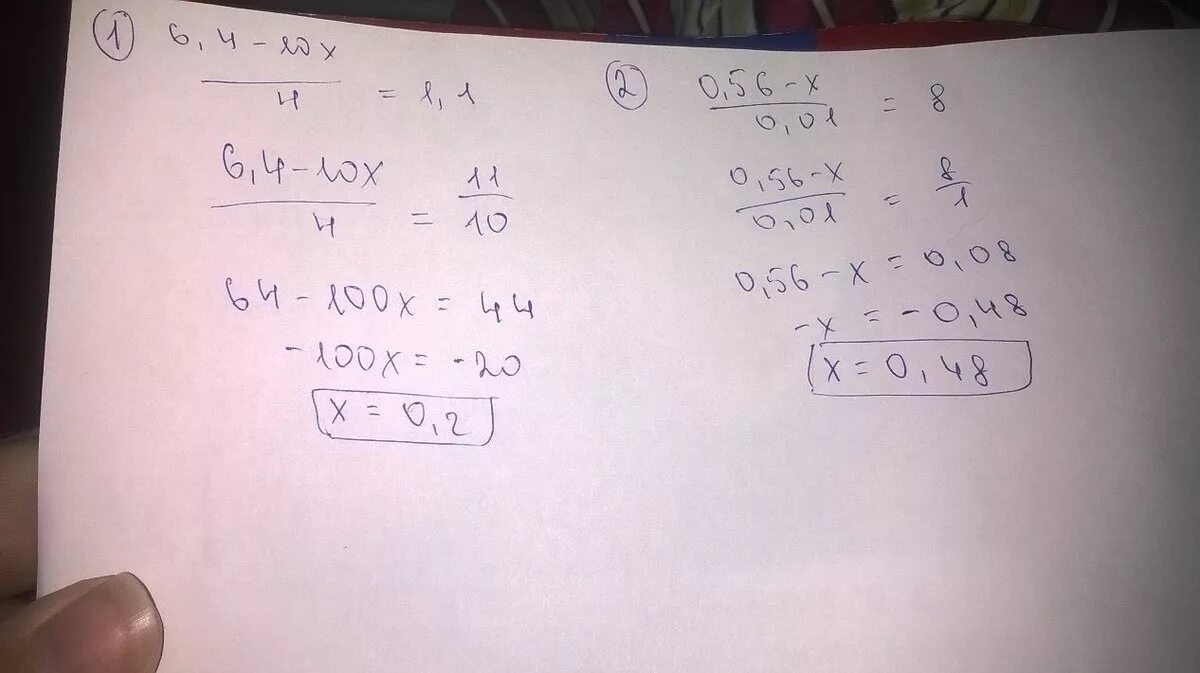 ① 6,4-10x
4 = 1,1
6,4-10x 11
4 = 10
64-100x = 44
-100x = -20
x = 0,2
② 0,56-x
0,01 = 8
0,56-x 8
0,01 = 1
0,56-x = 0,08
-x = -0,48
x = 0,48